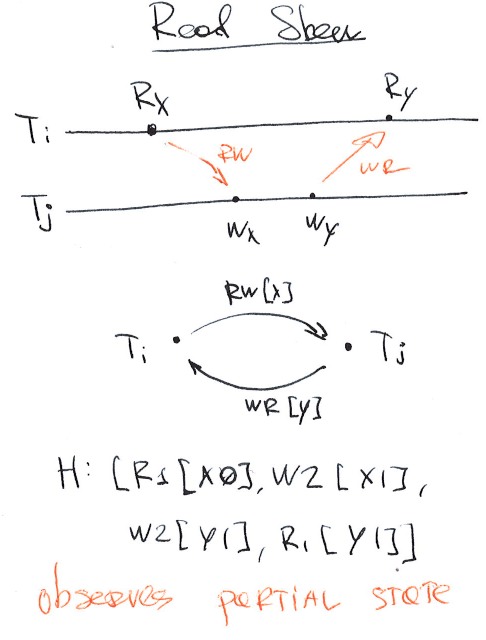 Read Skew
Rx
Ry
Ti
RW
WR
Tj
Wx
Wy
RW[X]
Ti
Tj
WR[Y]
H: [R1[X0], W2[X1],
W2[Y1], R1[Y1]]
observes PARTIAL STATE